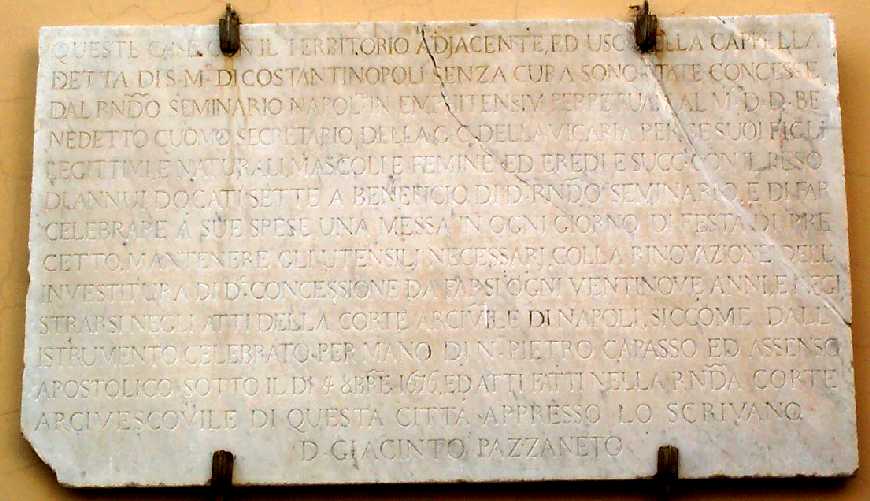 QUESTE CASE CON IL TERRITORIO ADJACENTE, ED USO DELLA CAPPELLA
DETTA DI S. M. DI COSTANTINOPOLI SENZA CURA SONO STATE CONCESSE
DAL RNDO SEMINARIO NAPOL. IN EMPHITENSIM PERPETUAM AL M. D. D. BE
NEDETTO CUOMO SECRETARIO DELLA G. C. DELLA VICARIA PER SE SUOI FIGLI
LEGITTIMI, E NATURALI, MASCOLI E FEMINE ED EREDI E SUCC. CON IL PESO
DI ANNUI DOCATI SETTE A BENEFICIO DI D. RNDO SEMINARIO, E DI FAR
CELEBRARE A SUE SPESE UNA MESSA IN OGNI GIORNO DI FESTA DI PRE
CETTO, MANTENERE GLI UTENSILJ NECESSARJ, COLLA RINOVAZIONE DELL
INVESTITURA DI DA. CONCESSIONE DA FARSI OGNI VENTINOVE ANNI, E REGI
STRARSI NEGLI ATTI DELLA CORTE ARCIVILE DI NAPOLI, SICCOME DALL
ISTRUMENTO CELEBRATO PER MANO DI N. PIETRO CAPASSO ED ASSENSO
APOSTOLICO SOTTO IL DI 4 8BRE 1676, ED ATTI FATTI NELLA RNDA CORTE
ARCIVESCOVILE DI QUESTA CITTA APPRESSO LO SCRIVANO
D. GIACINTO PAZZANETO